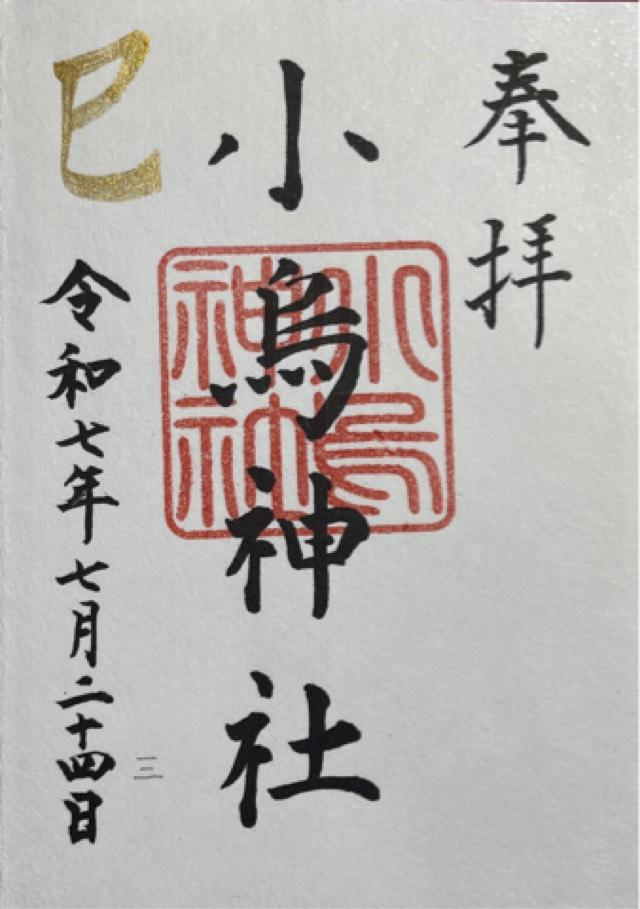 奉拝
小烏神社
小烏
神社
巳
令和七年七月二十四日
三